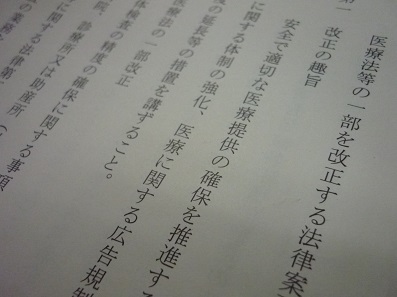 医療法等の一部を改正する法律案
第一 改正の趣旨
安全で適切な医療提供の確保を推進する
に関する体制の強化、医療に関する広告規制
の延長等の措置を講ずること。
医療法の一部改正
体検査の精度の確保に関する事項
院、診療所又は助産所
に関する法律第
の業務